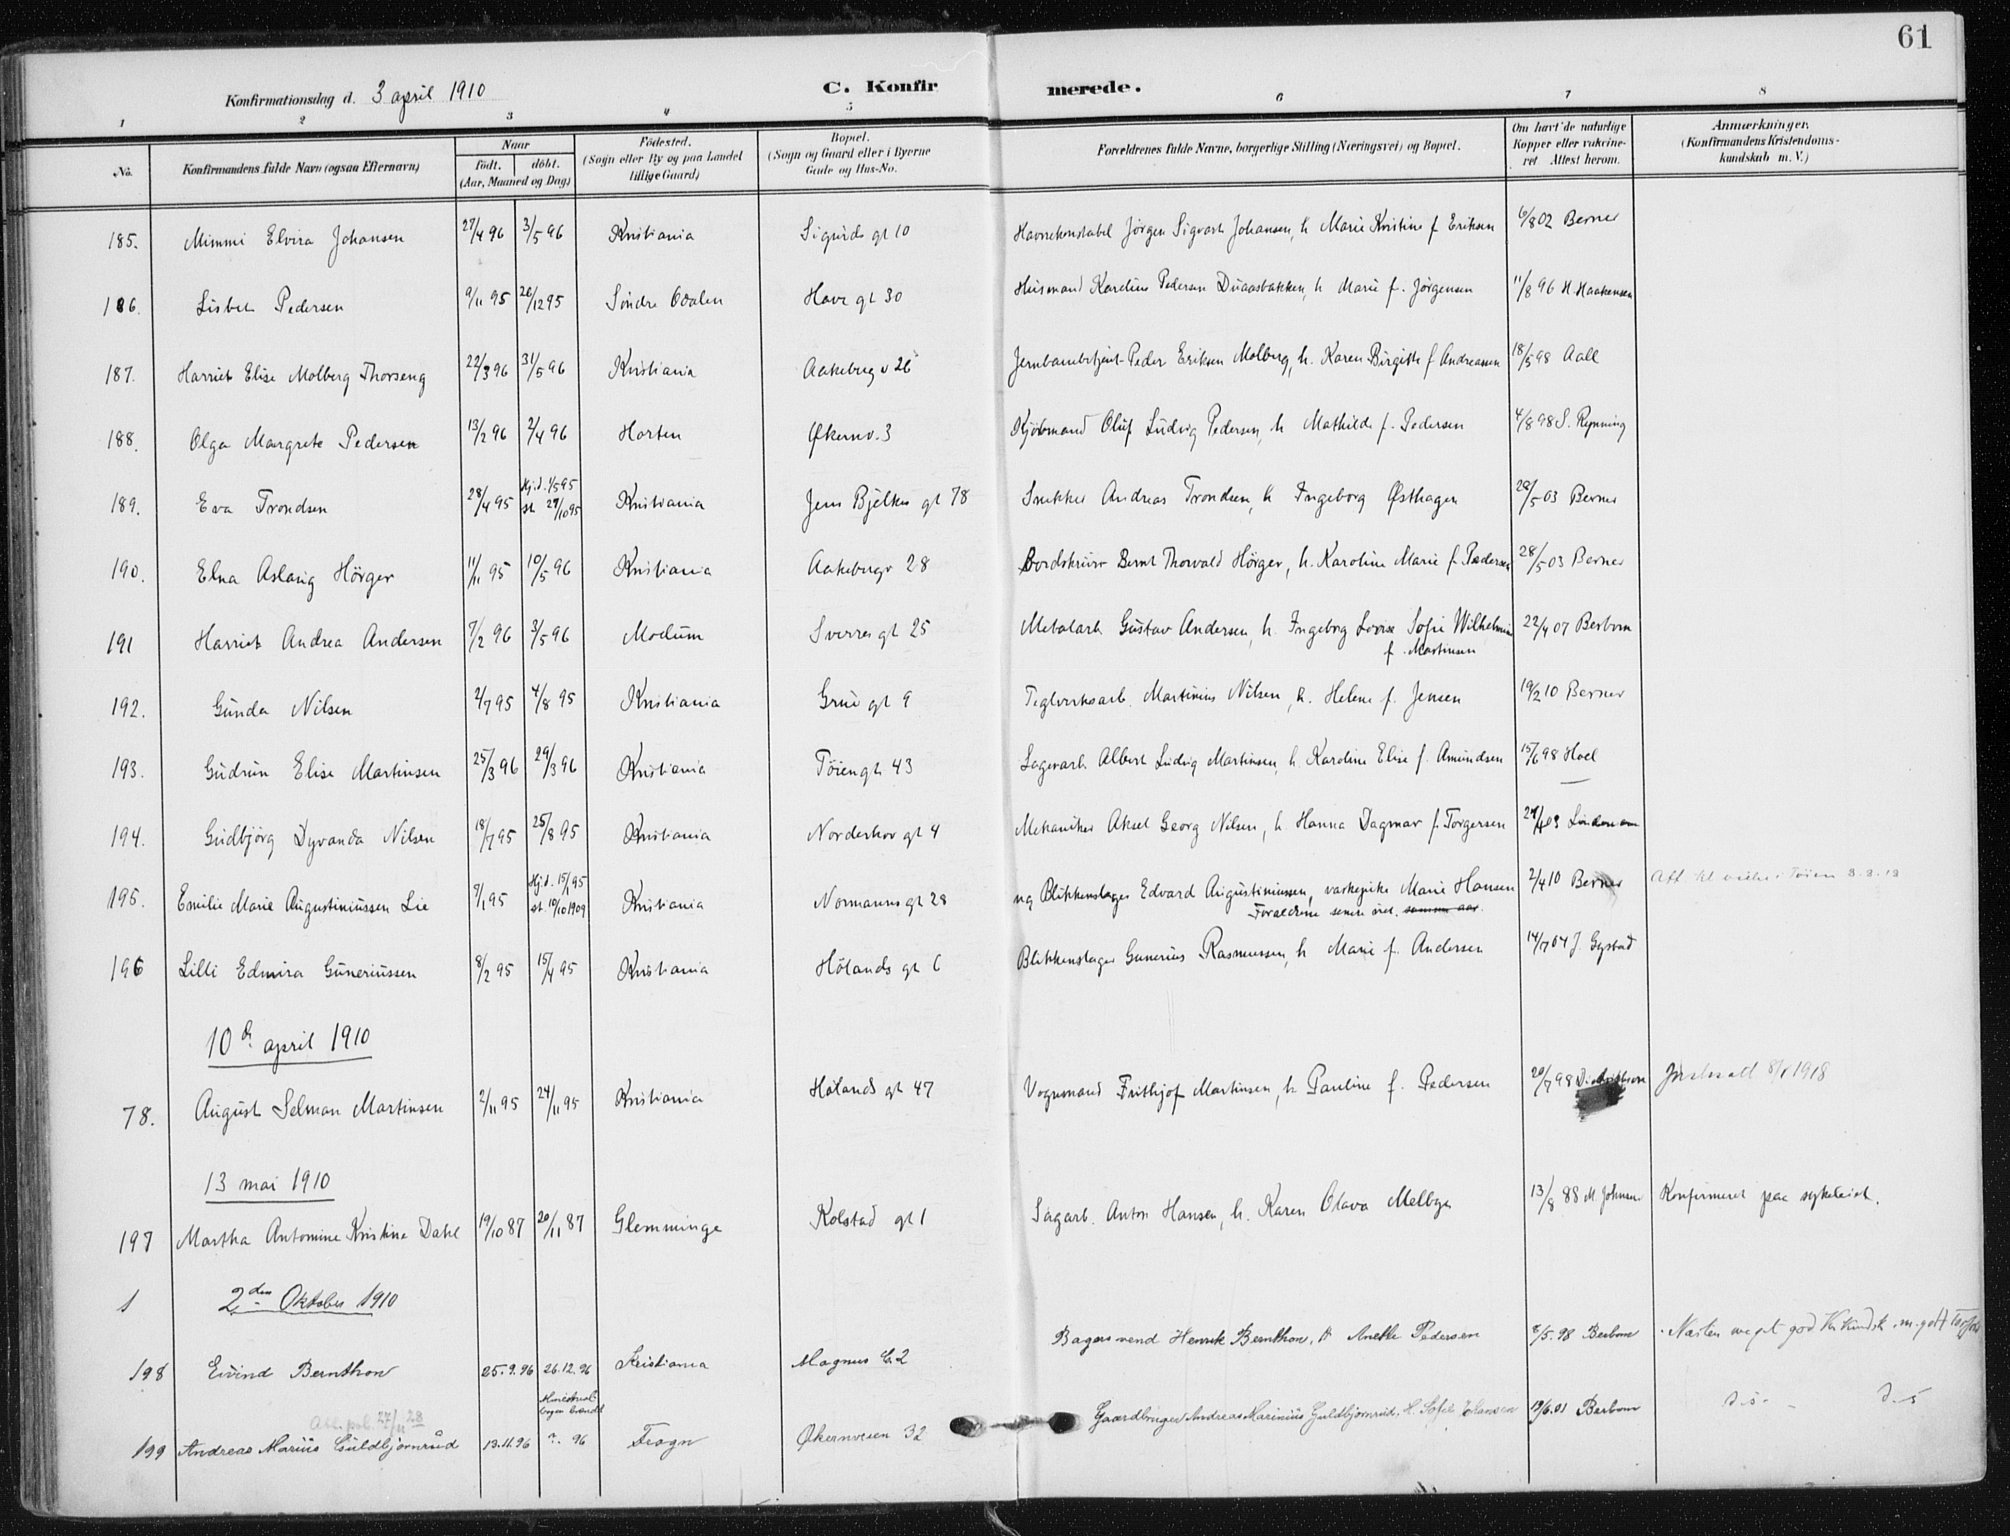 61
Konfirmationsdag d. 3 april 1910 C. Konfirmerede.
1 2 3 4 5 6 7 8
No. Konfirmandens fulde Navn (ogsaa Efternavn) Naar født. døbt. (Aar, Maaned og Dag) Fødested. (Sogn eller By og paa Landet tillige Gaard) Bopæl. (Sogn og Gaard eller i Byerne Gade og Hus-No. Forældrenes fulde Navne, borgerlige Stilling (Næringsvei) og Bopæl. Om havt de naturlige Kopper eller vakcineret Attest herom. Anmærkninger. (Konfirmandens Kristendomskundskab m. V.)
185. Mimmi Elvira Johansen 27/4 96 3/5 96 Kristiania Sigurds gt 10 Havnekonstabel Jørgen Sigvart Johansen, h. Marie Kristine f. Eriksen 6/8 02 Berner
186. Lisbet Pedersen 9/11 95 26/12 95 Søndre Odalen Havre gt 30 Husmand Karelius Pedersen h. Marie f. Jørgensen 11/8 96 H. Haakensen
187. Harriet Elise Molberg Thorseng 22/3 96 31/5 96 Kristiania Aakeberg v 26 Jernbanebetjent Peder Eriksen Molberg, h. Karen Birgitte f. Andreassen 18/5 98 Aall
188. Olga Margrete Pedersen 13/2 96 2/4 96 Horten Økernv. 3 Kjøbmand Oluf Ludvig Pedersen, h Mathilde f. Pedersen 4/8 98 S. Rynning
189. Eva Trondsen 28/4 95 Hj.d. 1/5 95 st. 27/10 95 Kristiania Jens Bjelkes gt 78 Snekker Andreas Trondsen, h Ingeborg Østhagen 28/5 03 Berner
190. Elna Aslaug Hörger 11/11 95 10/5 96 Kristiania Aakebergv 28 Bordskriver Bernt Thorvald Hörger, h. Karoline Marie f. Pedersen 28/5 03 Berner
191 Harriet Andrea Andersen 7/2 96 3/5 96 Modum Sverres gt 25 Metalarb. Gustav Andersen, h. Ingeborg Lovise Sofie Wilhelmine 22/4 07 Berbom
f. Martinsen
192. Gunda Nilsen 2/7 95 4/8 95 Kristiania Grue gt 9 Teglverksarb. Martinius Nilsen, h. Helene f. Jensen 19/2 10 Berner
193. Gudrun Elise Martinsen 25/3 96 29/3 96 Kristiania Töiengt. 43 Lagerarb. Albert Ludvig Martinsen, h. Karoline Elise f. Amundsen 15/6 98 Hoel
194. Gudbjörg Dyvanda Nilsen 18/7 95 25/8 95 Kristiania Norderhov gt 4 Mekaniker Aksel Georg Nilsen, h. Hanna Dagmar f. Torgersen
195. Emilie Marie Augustiniussen Lie 9/1 95 Hj.d. 15/1 95 st. 10/10 1909 Kristiania Normanns gt 28 ug Blikkenslager Edvard Augustiniussen, vaskepike Marie Hansen 2/4 10 Berner
Forældrene senere viet. samme aar.
196 Lilli Edmira Guneriussen 8/2 95 15/4 95 Kristiania Hölands gt 6 Blikkenslager Gunerius Rasmussen, h Marie f. Andersen 14/7 04 J. Gystad
10de april 1910
78. August Selman Martinsen 2/11 95 24/11 95 Kristiania Hölands gt 47 Vognmand Frithjof Martinsen, h Pauline f. Pedersen 20/7 98 1918
13 mai 1910
197 Martha Antomine Kristine Dahl 19/10 87 20/11 87 Glemminge Kolstad gt 1 Sagarb. Anton Hansen, h. Karen Olava Melbye 13/8 88 M. Johnsen Konfirmeret paa sykeleiet.
1 2den Oktober 1910
198 Eivind Bernthon 25.9.96 26.12.96 Kristiania Magnus G. 2 Bagersvend Henrik Bernthon, H Anette Pedersen 8/5.98 Berbom Næsten meget god
Att. pol. 27/11 28
199 Andreas Marius Guldbjørnrud 13.11.96 Ministerialbogen brændt ?. 96 Frogn Økernveien 32 Gaardbruger Andreas Marinius Guldbjørnrud, H. Sofie Johansen 19/6.01 Berbom